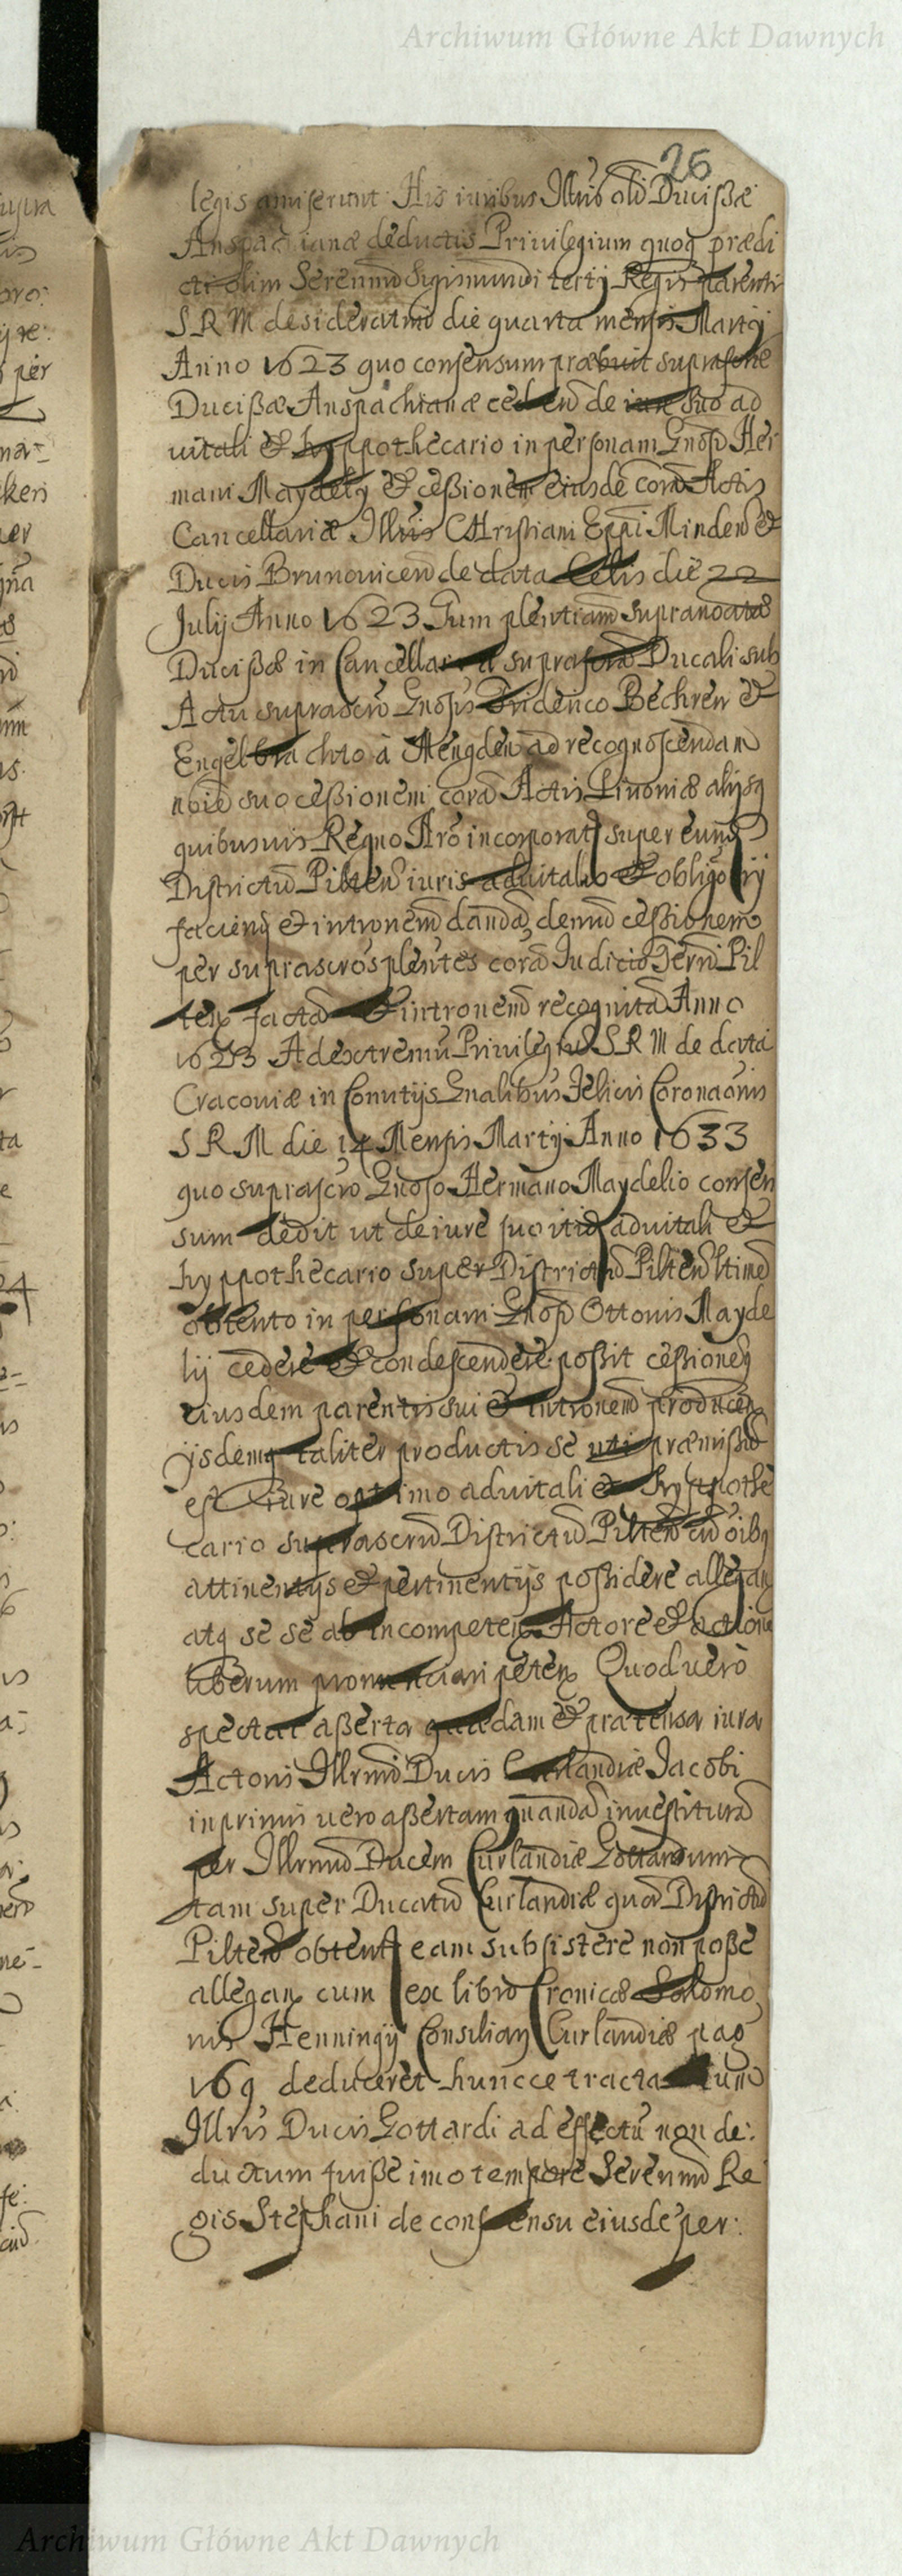 Archiwum Główne Akt Dawnych
26
legis amiserunt His iuribus Illris olī Ducißæ
Anspachianæ deductis Priuilegium quoq prædi
cti olim Serenmi Sigismundi tertij Regis parentis
S R M desideratmi die quarta mensis Martij
Anno 1623 quo consensum præbuit
Ducißæ Anspachianæ de iure suo ad
uitali & hyppothecario in personam Gnosi Her
mani Maydelij & ceßionem eiusdē corā Actis
Cancellariæ Illris CHristiani Eppi Minden &
Ducis Brunouicen de data Celis die 22
Julij Anno 1623 Tum plenitiam
Ducißæ in Cancellaria Ducali sub
Actu suprascro Gnosis Bechren &
Engelbrachto à Mengden ad recognoscendam
noīe suo ceßionem corā Actis Liuoniæ alijsq
quibusuis Regno super eund
Districtū Pilten iuris aduitalis & obligorij
faciend & intronem dandā, demū ceßionem
per suprascros plentes corā Judicio Terri Pil
ten factā & intronem recognitā Anno
1623 Ad extremū Priuilegiū S R M de data
Cracouiæ in Comitijs Gnalibus Felicis Coronaonis
S R M die 14 Mensis Martij Anno 1633
quo suprascro Gnoso Hermano Maydelio consen
sum dedit ut de iure suo aduitali &
hyppothecario super Districtū Pilten ltime
obtento in personam Gnosi Ottonis Mayde
lij cedere & condescendere poßit ceßioneq
eiusdem parentis sui & intronem producen
ijsdemq taliter productis se uti præmißū
est iure optimo aduitali & hyppothe
cario suprascrū Districtū Pilten cū oībq
attinentijs & pertinentijs poßidere allegan
atq se se ab incompeten Actore & actione
liberum pronunciari peten Quod uero
spectat aßerta quædam & prætensa iura
Actoris Illrmi Ducis Curlandiæ Jacobi
inprimis uero aßertam quandā inuestiturā
per Illrmū Ducem Curlandiæ Gottardum
tam super Ducatū Curlandiæ quā Districtū
Pilten obtent eam subsistere non poße
allegan cum ex libro Cronicæ Salomo
nis Henningij Consiliarij Curlandiæ pag
169 deduceret huncce tractatum
Illris Ducis Gottardi ad effectū non de:
ductum fuiße imo tempore Serenmi Re
gis Stephani de consensu eiusdē per:
Archiwum Główne Akt Dawnych